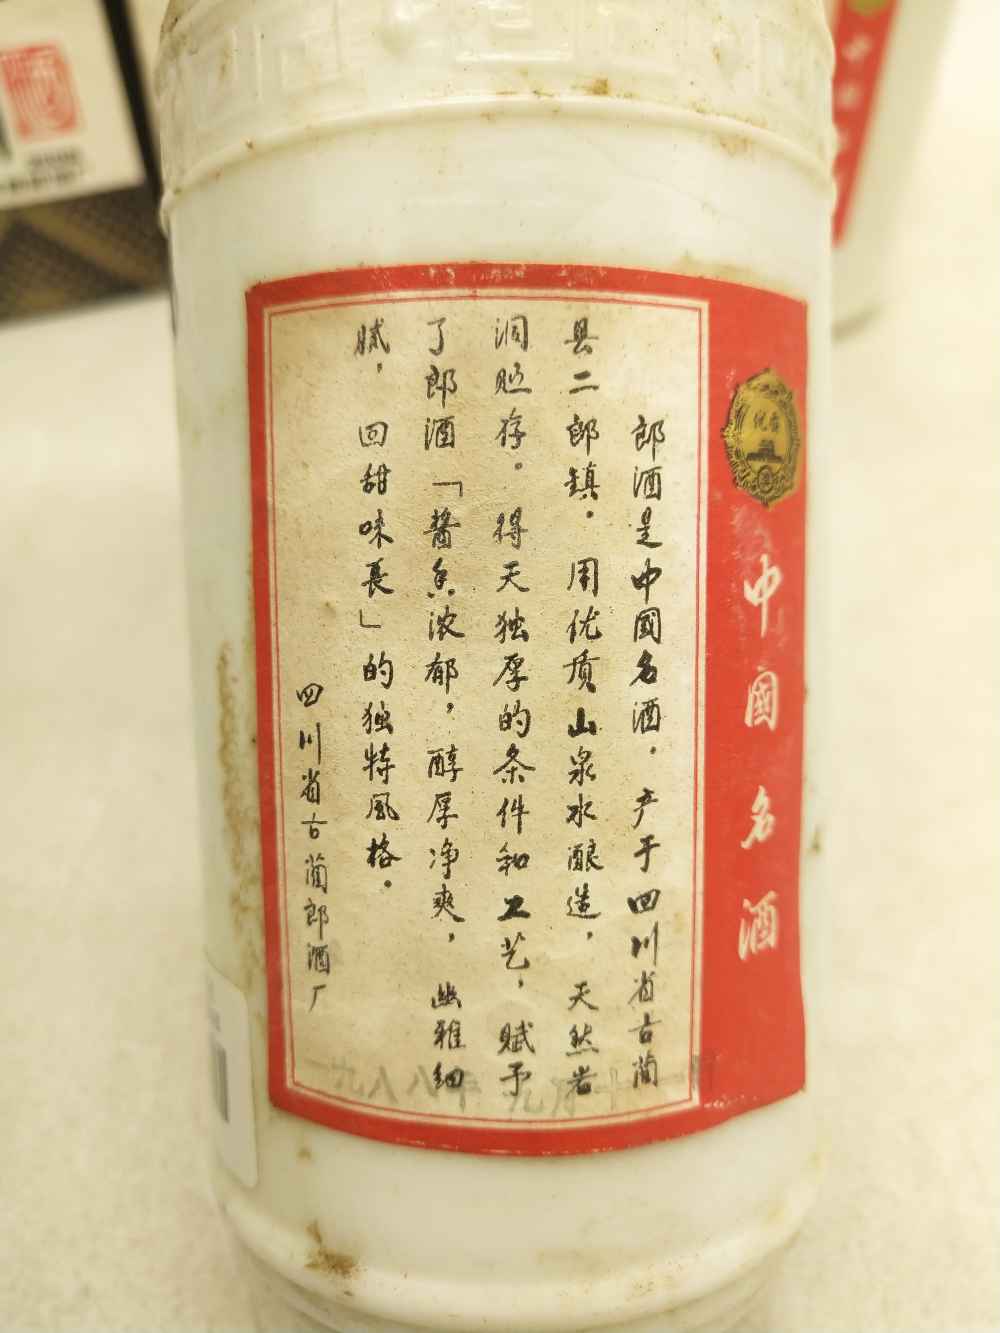 中國名酒
郎酒是中國名酒．产于四川省古蔺
县二郎镇．用优质山泉水酿造，天然岩
洞贮存。得天独厚的条件和工艺，赋予
了郎酒「醬香浓郁，醇厚净爽，幽雅细
腻，回甜味長」的独特風格．
四川省古蔺郎酒厂
一九八八年九月十一日